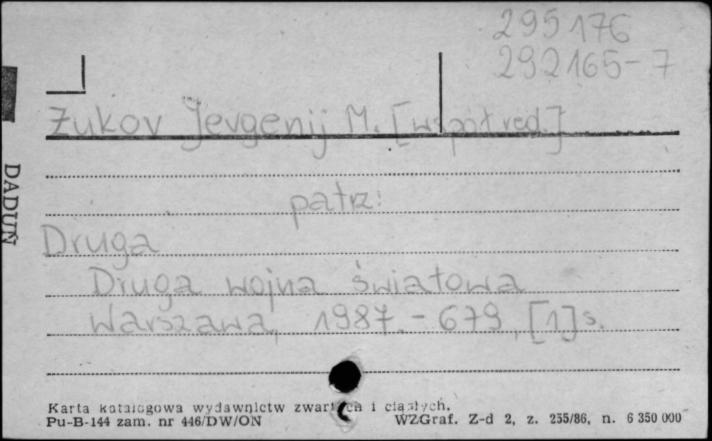 295176
292165-7
Żukov Jevgenij M. [współred.]
patrz:
Druga
Druga wojna światowa
Warszawa, 1987. - 679, [1] s.
DADUŃ
Karta katalogowa wydawnictw zwartych i ciągłych.
Pu-B-144 zam. nr 446/DW/ON WZGraf. Z-d 2, z. 235/86, n. 6 350 000